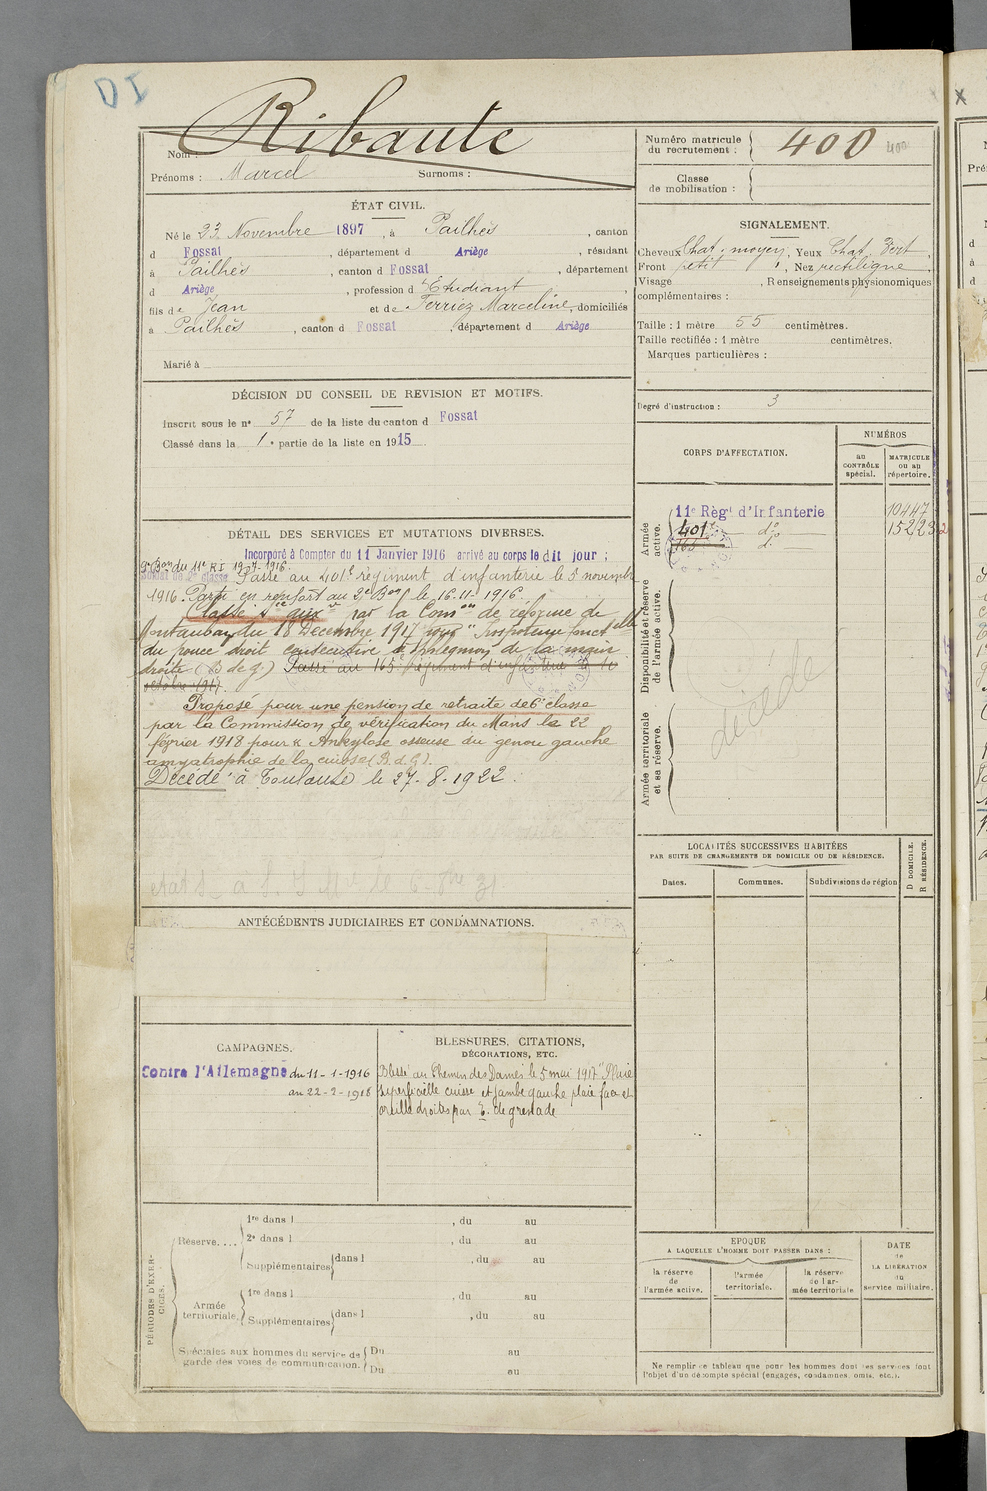 DI
Nom : Ribaute
Prénoms : Marcel Surnoms :
Numéro matricule
du recrutement : 400 400
Classe
de mobilisation :
ÉTAT CIVIL.
Né le 23 Novembre 1897, à Pailhès, canton
d Fossat, département d Ariège, résidant
à Pailhès, canton d Fossat, département
d Ariège, profession d Etudiant,
fils de Jean et de Ferriez Marceline, domiciliés
à Pailhès, canton d Fossat, département d Ariège
Marié à
SIGNALEMENT.
Cheveux Chat. moyen, Yeux Chat. Vert,
Front petit, Nez rectiligne,
Visage , Renseignements physionomiques
complémentaires :
Taille : 1 mètre 55 centimètres.
Taille rectifiée : 1 mètre centimètres.
Marques particulières :
Degré d'instruction : 3
DÉCISION DU CONSEIL DE REVISION ET MOTIFS.
Inscrit sous le n° 57 de la liste du canton d Fossat
Classé dans la 1e partie de la liste en 1915
CORPS D'AFFECTATION.
NUMÉROS
au
CONTRÔLE
spécial.
MATRICULE
ou au
répertoire.
Armée
active.
11e Régt d'Infanterie 10447
401e do 152232
163 do
Disponibilité et réserve
de l'armée active.
Armée territoriale
et sa réserve.
décédé
DÉTAIL DES SERVICES ET MUTATIONS DIVERSES.
Incorporé à Compter du 11 Janvier 1916 arrivé au corps le dit jour ;
9e Bon du 11e RI 19-7-1916.
Soldat de 2e classe Passé au 401e régiment d'infanterie le 5 novembre
1916. Parti en renfort au 2e Bon le 16.11.1916.
Classé Sce auxre par la Comon de réforme de
Montauban du 18 Décembre 1917 pour "Impotence fonctelle
du pouce droit consécutive à phlegmon de la main
droite (B de g.) Passé au 163e régiment d'infanterie le 10
octobre 1917.
Proposé pour une pension de retraite de 6e classe
par la Commission de vérification du Mans le 22
février 1918 pour « Ankylose osseuse du genou gauche
amyatrophie de la cuisse (B. d. G.).
Décédé à Toulouse le 27-8-1922.
ANTÉCÉDENTS JUDICIAIRES ET CONDAMNATIONS.
LOCALITÉS SUCCESSIVES HABITÉES
PAR SUITE DE CHANGEMENTS DE DOMICILE OU DE RÉSIDENCE.
Dates. Communes. Subdivisions de région
D DOMICILE.
R RÉSIDENCE.
CAMPAGNES.
Contre l'Allemagne du 11-1-1916
au 22-2-1918
BLESSURES, CITATIONS,
DÉCORATIONS, ETC.
Blessé au Chemin des Dames le 5 mai 1917 "Plaie
superficielle cuisse et jambe gauche plaie face et
oreille droites par E. de grenade
PÉRIODES D'EXER-
CICES.
Réserve....
1re dans l , du au
2e dans l , du au
Supplémentaires dans l , du au
Armée
territoriale.
1re dans l , du au
Supplémentaires dans l , du au
Spéciales aux hommes du service de
garde des voies de communication.
Du au
Du au
EPOQUE
A LAQUELLE L'HOMME DOIT PASSER DANS :
la réserve
de
l'armée active.
l'armée
territoriale.
la réserve
de l'ar-
mée territoriale
DATE
de
LA LIBÉRATION
du
service militaire.
Ne remplir ce tableau que pour les hommes dont les services font
l'objet d'un décompte spécial (engagés, condamnés, omis, etc.).